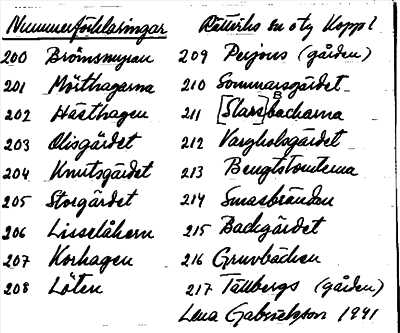 Nummerförklaringar
200 Brömsmyran
201 Mörthagarna
202 Hästhagen
203 Olisgärdet
204 Knutsgärdet
205 Storgärdet
206 Lisselåkern
207 Korhagen
208 Löten
Rättviks sn
209 Perjons (gården)
210 Sommarsgärdet
211 [Slars]backarna
B
212 Vargholsgärdet
213 Bengtstomterna
214 Smasbrändan
215 Backgärdet
216 Gruvbäcken
217 Tällbergs (gården)
Lena Gabrielsson 1991